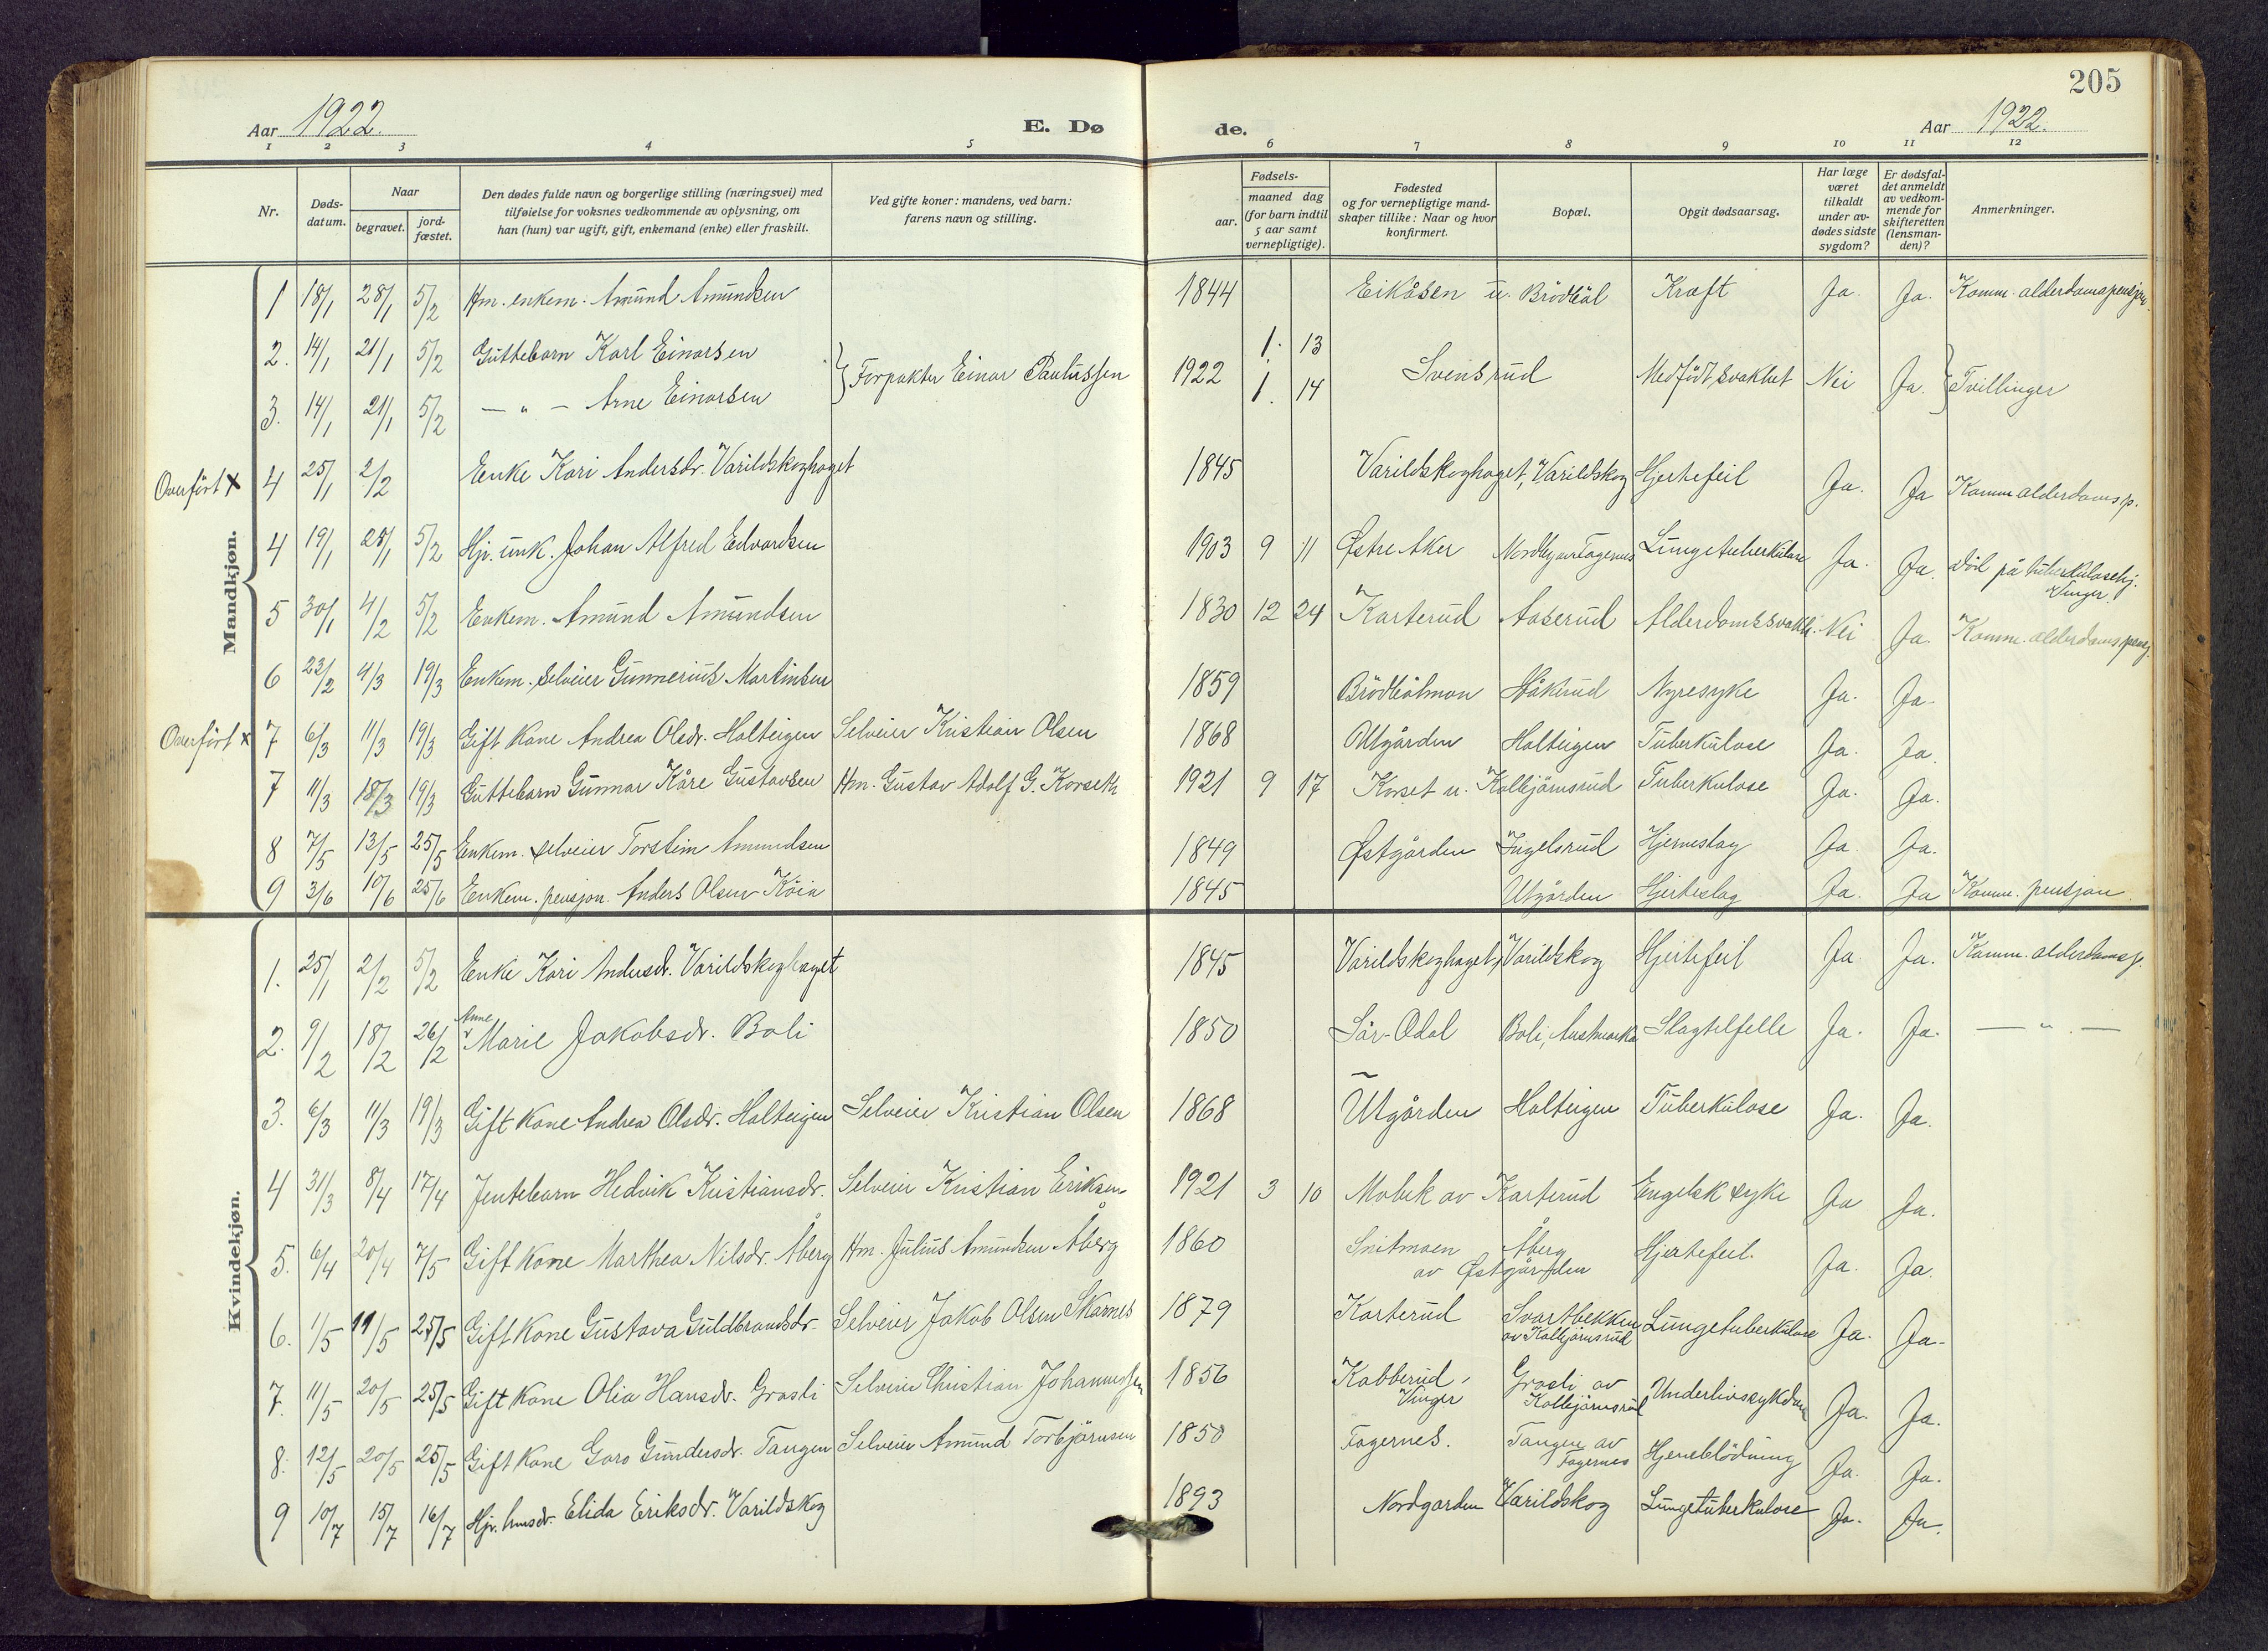 205
Aar 1922.
E. Døde.
Aar 1922.
1 2 3 4 5 6 7 8 9 10 11 12
Nr.
Døds-
datum.
Naar
begravet.
jord-
fæstet.
Den dødes fulde navn og borgerlige stilling (næringsvei) med
tilføielse for voksnes vedkommende av oplysning, om
han (hun) var ugift, gift, enkemand (enke) eller fraskilt.
Ved gifte koner: mandens, ved barn:
farens navn og stilling.
Fødsels-
aar.
maaned dag
(for barn indtil
5 aar samt
vernepligtige).
Fødested
og for vernepligtige mand-
skaper tillike: Naar og hvor
konfirmert.
Bopæl.
Opgit dødsaarsag.
Har læge
været
tilkaldt
under av-
dødes sidste
sygdom?
Er dødsfal-
det anmeldt
av vedkom-
mende for
skifteretten
(lensman-
den)?
Anmerkninger.
Mandkjøn.
1 18/1 28/1 5/2 Hm. enkem. Amund Amundsen 1844 Eikåsen u. Brödböl Kræft Ja. Ja. Komm. alderdomspensjon.
2. 14/1 21/1 5/2 Guttebarn Karl Einarsen } Forpakter Einar Paulussen 1922 1. 13 Svensrud Medfödt svakhet Nei Ja. } Tvillinger
3. 14/1 21/1 5/2 — " — Arne Einarsen 1. 14
Overført x 4 25/1 2/2 Enke Kari Andersdr. Varildskoghaget 1845 Varildskoghaget, Varildskog Hjertefeil Ja. Ja Komm alderdomsp.
4 19/1 28/1 5/2 Hjv. unk. Johan Alfred Edvardsen 1903 9 11 Østre Aker Nordby av Fagernes Lungetuberkulose Ja. Ja. Död på tuberkulosehj.
Vinger.
5 30/1 4/2 5/2 Enkem. Amund Amundsen 1830 12 24 Karterud Aaserud Alderdomssvakh. Nei Ja. Komm. alderdomspensj.
6 23/2 4/3 19/3 Enkem. selveier Gunnerius Martinsen 1859 Brödbölmon Håkerud Nyresyke Ja. Ja.
Overført x 7 6/3 11/3 19/3 Gift Kone Andrea Olsdr. Holteigen Selveier Kristian Olsen 1868 Utgården Holteigen Tuberkulose Ja. Ja.
7 11/3 18/3 19/3 Guttebarn Gunnar Kåre Gustavsen Hm. Gustav Adolf G. Korseth 1921 9 17 Korset u. Kolbjörnsrud Tuberkulose Ja. Ja.
8 7/5 13/5 25/5 Enkem. selveier Torstein Amundsen 1849 Østgården Ingelsrud Hjerneslag Ja. Ja.
9 3/6 10/6 25/6 Enkem. pensjon. Anders Olsen Köia 1845 Utgården Hjerteslag Ja. Ja Komm. pensjon.
Kvindekjøn.
1. 25/1 2/2 5/2 Enke Kari Andersdr. Varildskoghaget 1845 Varildskoghaget, Varildskog Hjertefeil Ja. Ja. Komm. alderdomsp.
Anne
2. 9/2 18/2 26/2 Marie Jakobsdr. Boli 1850 Sör-Odal Boli, Austmarka Slagtilfelle Ja. Ja. — " —
3. 6/3 11/3 19/3 Gift Kone Andrea Olsdr. Holteigen Selveier Kristian Olsen 1868 Utgården Holteigen Tuberkulose Ja. Ja.
4 31/3 8/4 17/4 Jentebarn Hedvik Kristiansdr. Selveier Kristian Eriksen 1921 3 10 Mobek av Karterud Engelsk syke Ja Ja.
5. 6/4 20/4 7/5 Gift Kone Marthea Nilsdr. Åberg Hm. Julius Amundsen Åberg 1860 Snitmoen Åberg Hjertefeil. Ja. Ja.
av Østgården
6. 1/5 11/5 25/5 Gift Kone Gustava Guldbrandsdr. Selveier Jakob Olsen Skarnes 1879 Karterud Svartbekken Lungetuberkulose Ja. Ja.
av Kolbjörnsrud
7. 11/5 20/5 25/5 Gift Kone Olia Hansdr. Grasli Selveier Christian Johannessen 1856 Kabberud, Grasli av Underlivssykdom Ja. Ja.
Vinger Kolbjörnsrud
8. 12/5 20/5 25/5 Gift Kone Goro Gundersdr. Tangen Selveier Amund Torbjörnsen 1850 Fagernes. Tangen av Hjerneblödning Ja. Ja.
Fagernes
9 10/7 15/7 16/7 Hjv. husdr. Elida Eriksdr. Varildskog 1893 Nordgarden Varildskog Lungetuberkulose Ja. Ja.